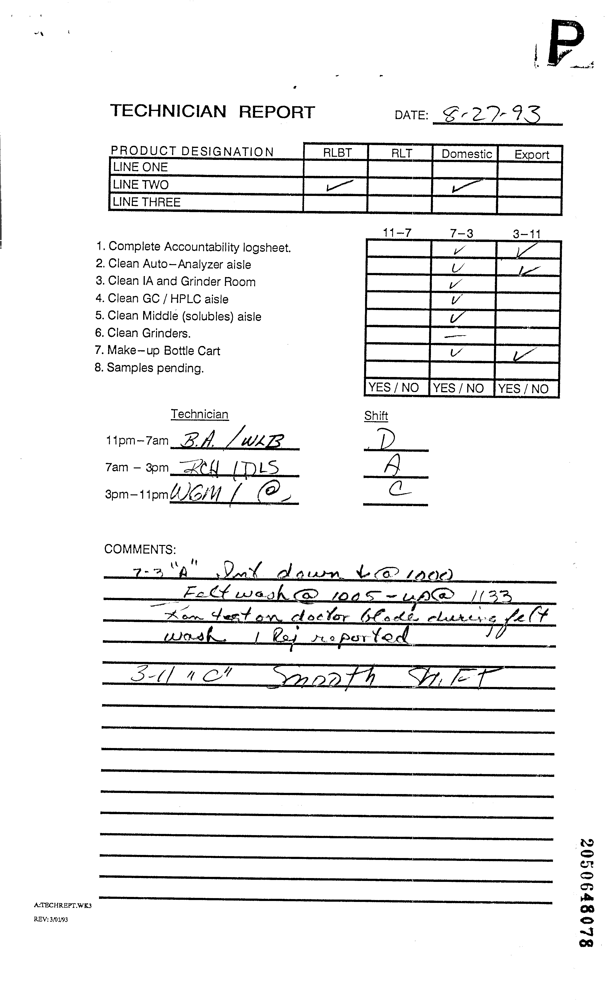 P
TECHNICIAN REPORT DATE: 8-27-93
PRODUCT DESIGNATION RLBT RLT Domestic Export
LINE ONE
LINE TWO ✓ ✓
LINE THREE
11-7 7-3 3-11
1. Complete Accountability logsheet. ✓ ✓
2. Clean Auto-Analyzer aisle ✓ ✓
3. Clean IA and Grinder Room ✓
4. Clean GC / HPLC aisle ✓
5. Clean Middle (solubles) aisle ✓
6. Clean Grinders. —
7. Make-up Bottle Cart ✓ ✓
8. Samples pending.
YES / NO YES / NO YES / NO
Technician Shift
11pm-7am B.A. / WLB D
7am - 3pm RCH / DLS A
3pm-11pm WGM / C
COMMENTS:
7-3 "A" down @ 1000
Felt wash @ 1005 - up @ 1133
test on doctor blade during felt
wash 1 Rej reported
3-11 "C" Smooth Shift
A:TECHREPT.WK3
REV: 3/01/93
2050648078